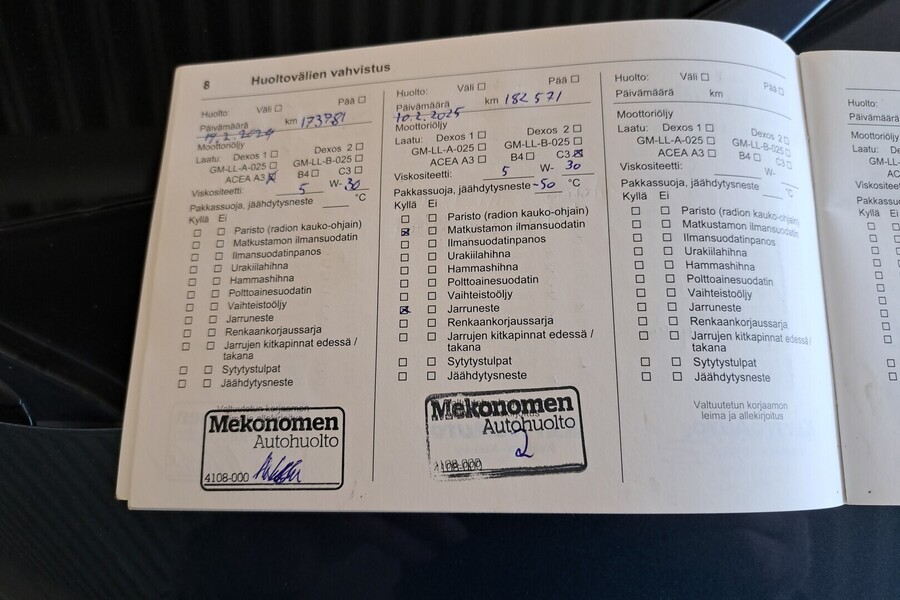 8 Huoltovälien vahvistus
Huolto: Väli Pää
Päivämäärä km 173781
Moottoriöljy
Laatu: Dexos 1 Dexos 2
GM-LL-A-025 GM-LL-B-025
ACEA A3 B4 C3
Viskositeetti: 5 W- 30
Pakkassuoja, jäähdytysneste °C
Kyllä Ei
Paristo (radion kauko-ohjain)
Matkustamon ilmansuodatin
Ilmansuodatinpanos
Urakiilahihna
Hammashihna
Polttoainesuodatin
Vaihteistoöljy
Jarruneste
Renkaankorjaussarja
Jarrujen kitkapinnat edessä /
takana
Sytytystulpat
Jäähdytysneste
Mekonomen
Autohuolto
4108-000
Huolto: Väli Pää
Päivämäärä km 182 571
10.2.2025
Moottoriöljy
Laatu: Dexos 1 Dexos 2
GM-LL-A-025 GM-LL-B-025
ACEA A3 B4 C3
Viskositeetti: 5 W- 30
Pakkassuoja, jäähdytysneste -50 °C
Kyllä Ei
Paristo (radion kauko-ohjain)
Matkustamon ilmansuodatin
Ilmansuodatinpanos
Urakiilahihna
Hammashihna
Polttoainesuodatin
Vaihteistoöljy
Jarruneste
Renkaankorjaussarja
Jarrujen kitkapinnat edessä /
takana
Sytytystulpat
Jäähdytysneste
Mekonomen
Autohuolto
2
4108-000
Huolto: Väli Pää
Päivämäärä km
Moottoriöljy
Laatu: Dexos 1 Dexos 2
GM-LL-A-025 GM-LL-B-025
ACEA A3 B4 C3
Viskositeetti: W-
Pakkassuoja, jäähdytysneste °C
Kyllä Ei
Paristo (radion kauko-ohjain)
Matkustamon ilmansuodatin
Ilmansuodatinpanos
Urakiilahihna
Hammashihna
Polttoainesuodatin
Vaihteistoöljy
Jarruneste
Renkaankorjaussarja
Jarrujen kitkapinnat edessä /
takana
Sytytystulpat
Jäähdytysneste
Valtuutetun korjaamon
leima ja allekirjoitus
Huolto:
Päivämäärä
Moottoriöljy
Laatu:
GM-LL-
ACE
Viskositeet
Pakkassu
Kyllä Ei